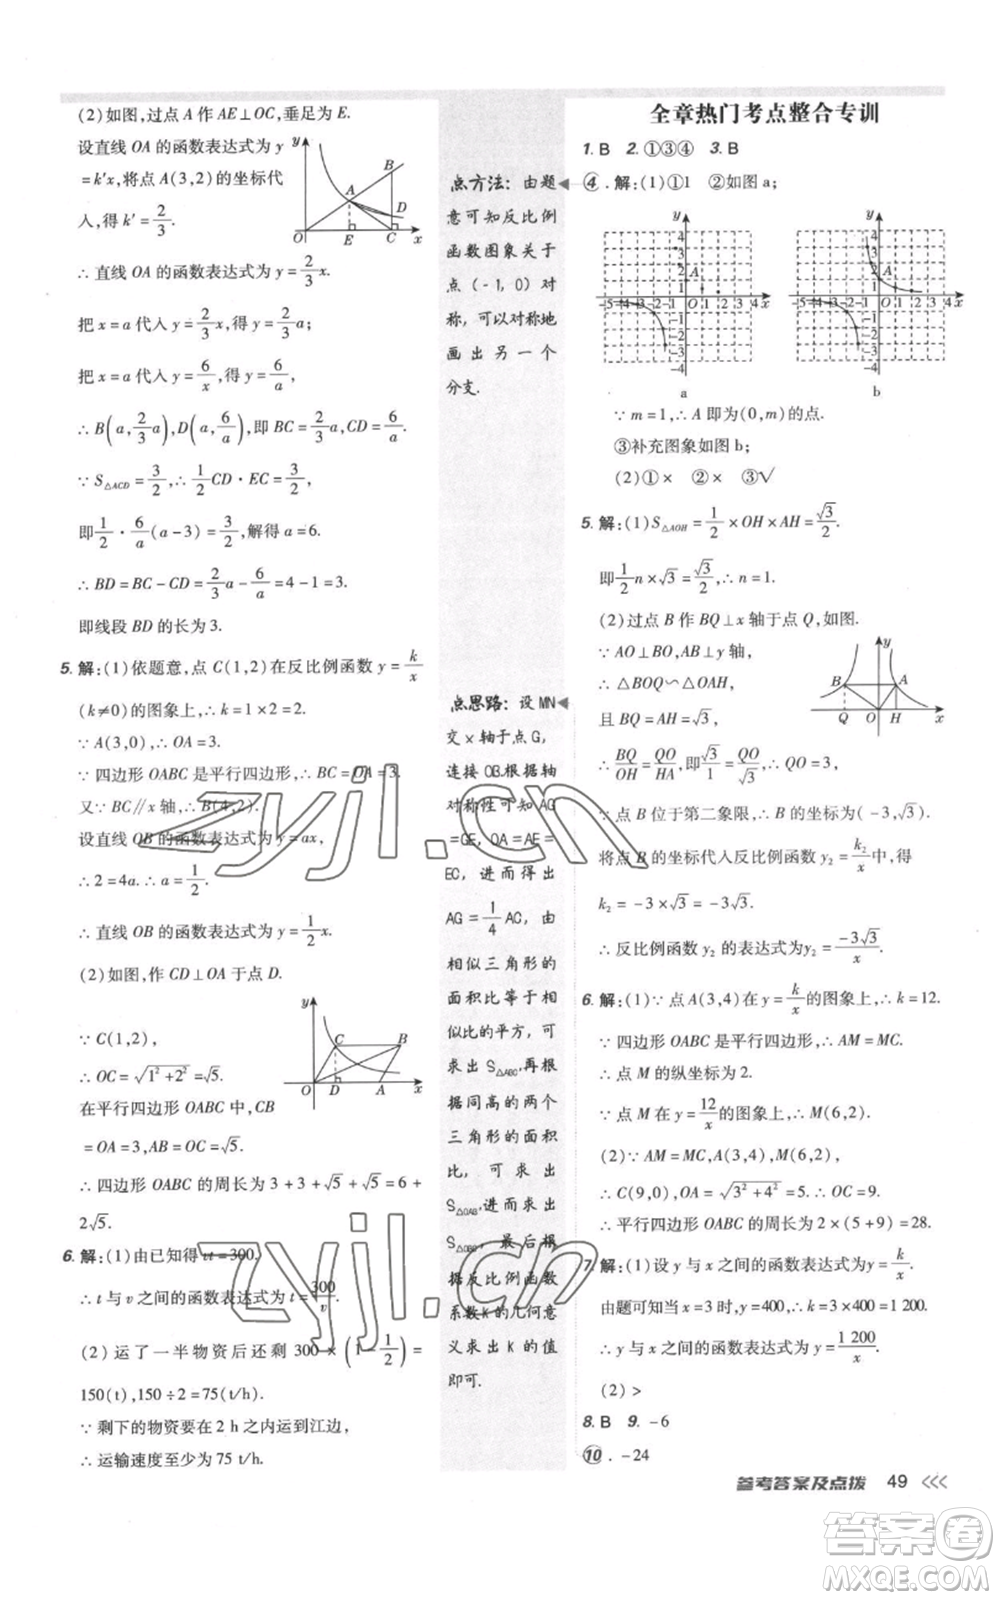 (2)如图,过点 A 作 AE⊥OC,垂足为 E.
设直线 OA 的函数表达式为 y
=k′x,将点 A(3,2)的坐标代
入,得 k′=2/3.
y
B
A
D
O
E
C
x
∴ 直线 OA 的函数表达式为 y=2/3x.
把 x=a 代入 y=2/3x,得 y=2/3a;
把 x=a 代入 y=6/x,得 y=6/a,
∴ B(a,2/3a),D(a,6/a),即 BC=2/3a,CD=6/a.
∵ S△ACD=3/2,∴ 1/2CD·EC=3/2,
即1/2·6/a(a-3)=3/2,解得 a=6.
∴ BD=BC-CD=2/3a-6/a=4-1=3.
即线段 BD 的长为 3.
5. 解:(1)依题意,点 C(1,2)在反比例函数 y=k/x
(k≠0)的图象上,∴ k=1×2=2.
∵ A(3,0),∴ OA=3.
∵ 四边形 OABC 是平行四边形,∴ BC=OA=3.
又∵ BC∥x 轴,∴ B(4,2).
设直线 OB 的函数表达式为 y=ax,
∴ 2=4a.∴ a=1/2.
∴ 直线 OB 的函数表达式为 y=1/2x.
(2)如图,作 CD⊥OA 于点 D.
∵ C(1,2),
∴ OC=√1²+2²=√5.
在平行四边形 OABC 中,CB
=OA=3,AB=OC=√5.
y
C
B
O
D
A
x
∴ 四边形 OABC 的周长为 3+3+√5+√5=6+
2√5.
6. 解:(1)由已知得 vt=300.
∴ t 与 v 之间的函数表达式为 t=300/v.
(2)运了一半物资后还剩 300×(1-1/2)=
150(t),150÷2=75(t/h).
∵ 剩下的物资要在 2 h 之内运到江边,
∴ 运输速度至少为 75 t/h.
点方法:由题
意可知反比例
函数图象关于
点(-1,0)对
称,可以对称地
画出另一个
分支.
点思路:设 MN
交 x 轴于点 G,
连接 OB.根据轴
对称性可知 AG
=GE,OA=AE=
EC,进而得出
AG=1/4AC,由
相似三角形的
面积比等于相
似比的平方,可
求出 S△ABC,再根
据同高的两个
三角形的面积
比,可求出
S△OAB,进而求出
S△OBG,最后根
据反比例函数
系数 K 的几何意
义求出 K 的值
即可.
全章热门考点整合专训
1. B 2. ①③④ 3. B
④. 解:(1)①1 ②如图 a;
a
b
∵ m=1,∴ A 即为(0,m)的点.
③补充图象如图 b;
(2)①× ②× ③√
5. 解:(1)S△AOH=1/2×OH×AH=√3/2.
即1/2n×√3=√3/2,∴ n=1.
(2)过点 B 作 BQ⊥x 轴于点 Q,如图.
∵ AO⊥BO,BQ⊥y 轴,
∴ △BOQ∽△OAH,
且 BQ=AH=√3,
y
B
A
Q
O
H
x
∴ BQ/OH=QO/HA,即√3/1=QO/√3,∴ QO=3,
∵ 点 B 位于第二象限,∴ B 的坐标为(-3,√3).
将点 B 的坐标代入反比例函数 y₂=k₂/x中,得
k₂=-3×√3=-3√3.
∴ 反比例函数 y₂ 的表达式为y₂=-3√3/x.
6. 解:(1)∵ 点 A(3,4)在 y=k/x的图象上,∴ k=12.
∵ 四边形 OABC 是平行四边形,∴ AM=MC.
∴ 点 M 的纵坐标为 2.
∵ 点 M 在 y=12/x的图象上,∴ M(6,2).
(2)∵ AM=MC,A(3,4),M(6,2),
∴ C(9,0),OA=√3²+4²=5.∴ OC=9.
∴ 平行四边形 OABC 的周长为 2×(5+9)=28.
7. 解:(1)设 y 与 x 之间的函数表达式为 y=k/x.
由题可知当 x=3 时,y=400,∴ k=1 200.
∴ y 与 x 之间的函数表达式为 y=1 200/x.
(2)>
8. B 9. -6
⑩. -24
参考答案及点拨 49
zyjl.cn
zyjl.cn
答案卷
MXQE.COM